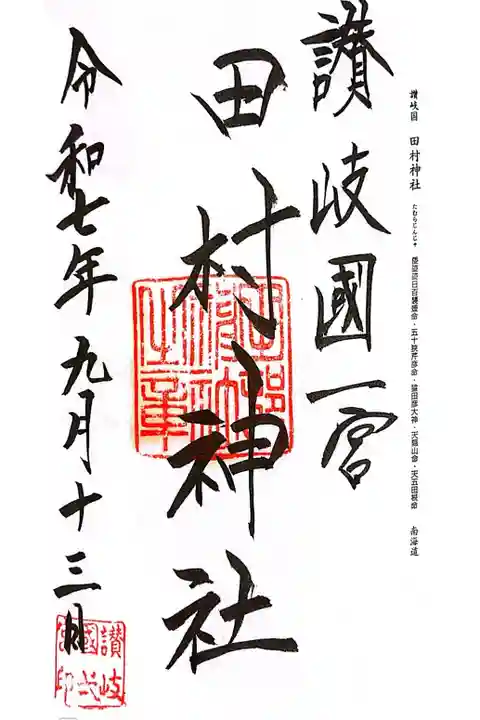 讃岐国 田村神社 たむらじんじゃ 倭迹迹日百襲姫命・五十狭芹彦命・猿田彦大神・天隠山命・天五田根命 南海道
讃岐國一宮
田村神社
令和七年九月十三日
讃岐
國弌
宮印